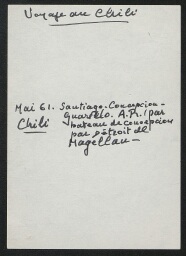 Voyage au Chili
Mai 61. Santiago. Concepcion -
Chili
Guarello. A.R. (par
bateau de Concepcion
par détroit de
Magellan -